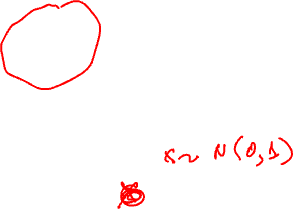 x ~ N(0,1)